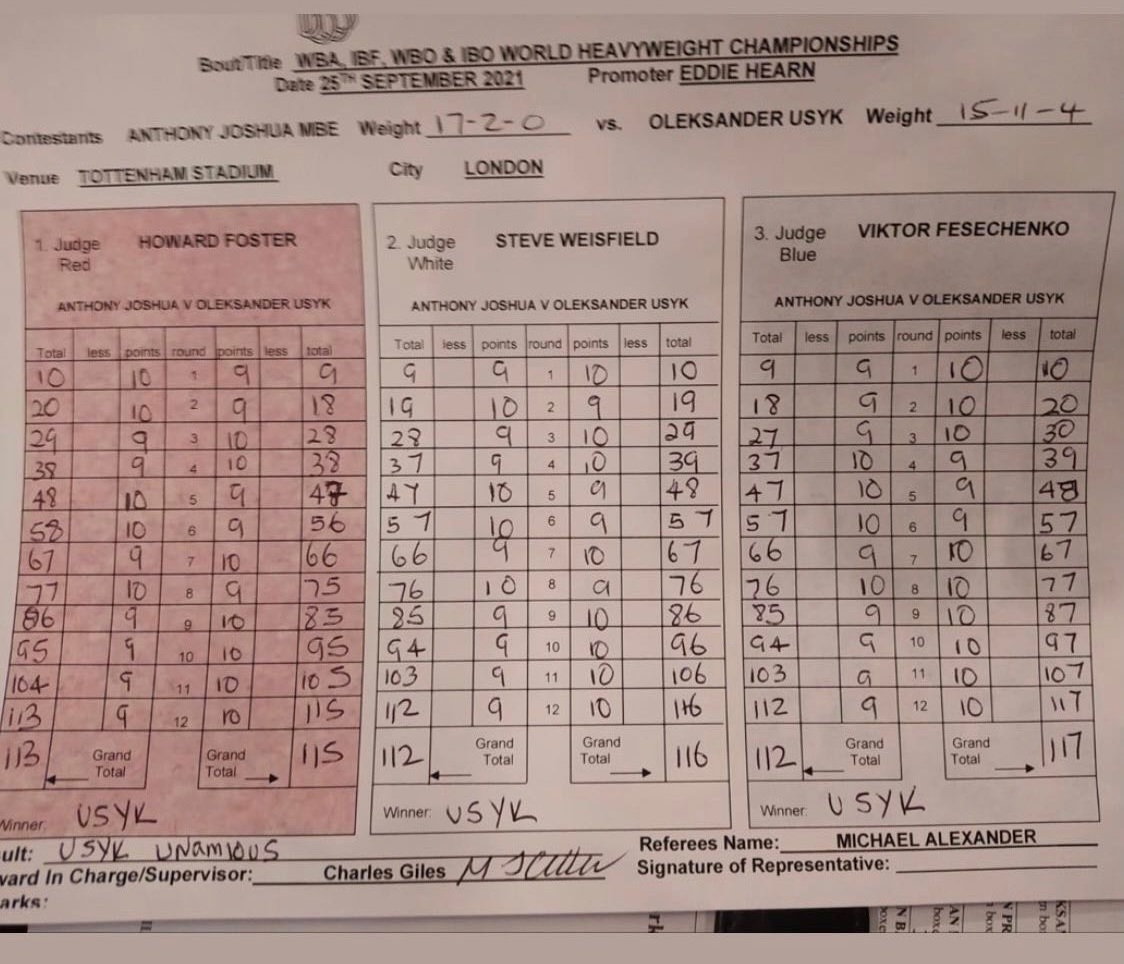 Bout Title WBA, IBF, WBO & IBO WORLD HEAVYWEIGHT CHAMPIONSHIPS
Date 25TH SEPTEMBER 2021 Promoter EDDIE HEARN
Contestants ANTHONY JOSHUA MBE Weight 17-2-0 vs. OLEKSANDER USYK Weight 15-11-4
Venue TOTTENHAM STADIUM City LONDON
1. Judge HOWARD FOSTER
Red
ANTHONY JOSHUA V OLEKSANDER USYK
Total less points round points less total
10 10 1 9 9
20 10 2 9 18
29 9 3 10 28
38 9 4 10 38
48 10 5 9 47
58 10 6 9 56
67 9 7 10 66
77 10 8 9 75
86 9 9 10 85
95 9 10 10 95
104 9 11 10 105
113 9 12 10 115
113 Grand Total Grand Total 115
Winner: USYK
2. Judge STEVE WEISFIELD
White
ANTHONY JOSHUA V OLEKSANDER USYK
Total less points round points less total
9 9 1 10 10
19 10 2 9 19
28 9 3 10 29
37 9 4 10 39
47 10 5 9 48
57 10 6 9 57
66 9 7 10 67
76 10 8 9 76
85 9 9 10 86
94 9 10 10 96
103 9 11 10 106
112 9 12 10 116
112 Grand Total Grand Total 116
Winner: USYK
3. Judge VIKTOR FESECHENKO
Blue
ANTHONY JOSHUA V OLEKSANDER USYK
Total less points round points less total
9 9 1 10 10
18 9 2 10 20
27 9 3 10 30
37 10 4 9 39
47 10 5 9 48
57 10 6 9 57
66 9 7 10 67
76 10 8 10 77
85 9 9 10 87
94 9 10 10 97
103 9 11 10 107
112 9 12 10 117
112 Grand Total Grand Total 117
Winner: USYK
ult: USYK UNAMIOUS
Referees Name: MICHAEL ALEXANDER
ward In Charge/Supervisor: Charles Giles
Signature of Representative:
arks: